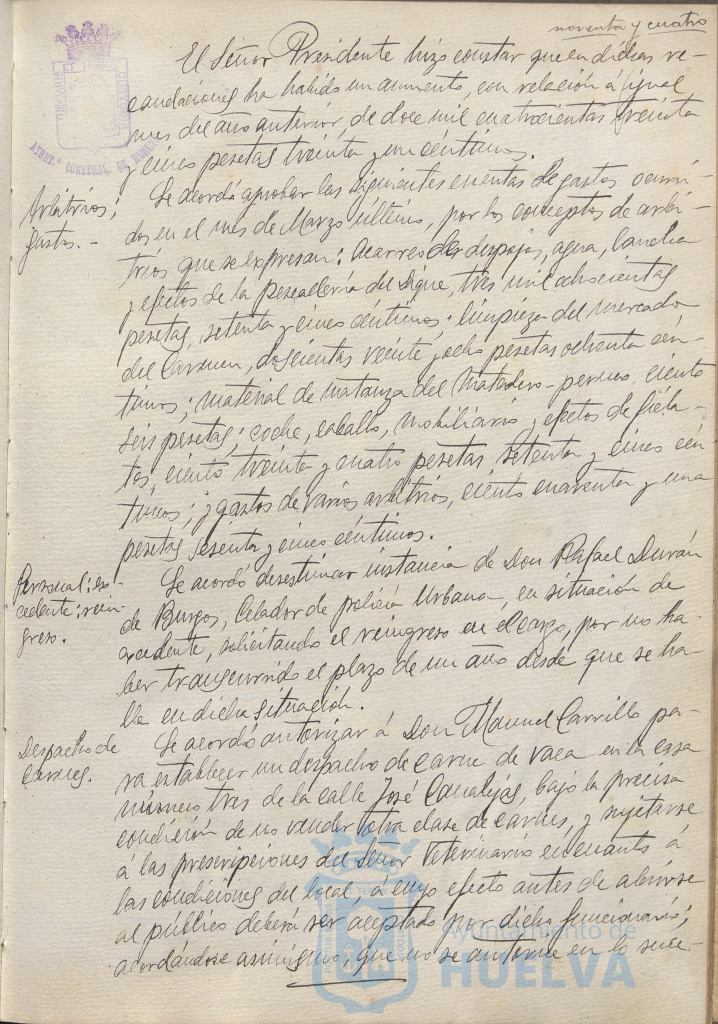 noventa y cuatro
El Señor Presidente hizo constar que en dichas re-
caudaciones ha habido un aumento, con relación á igual
mes del año anterior, de doce mil cuatrocientas treinta
y cinco pesetas treinta y un céntimos.
AYUNT.º CONSTNAL. DE HUELVA
Arbitrios;
gastos.-
Se acordó aprobar las siguientes cuentas de gastos ocurri-
dos en el mes de Marzo último, por los conceptos de arbi-
trios que se expresan: Acarreo de despojos, agua, lancha
y efectos de la Pescadería del Dique, tres mil ochocientas
pesetas, setenta y cinco céntimos; limpieza del mercado
del Carmen, doscientas veinte y ocho pesetas ochenta cén-
timos; material de matanza del Matadero-porcuno, ciento
seis pesetas; coche, caballo, mobiliario y efectos de fiela-
tos, ciento treinta y cuatro pesetas setenta y cinco cén-
timos; y gastos de varios arbitrios, ciento cuarenta y una
pesetas sesenta y cinco céntimos.
Personal; es-
cedente; rein-
greso.
Se acordó desestimar instancia de Don Rafael Durán
de Burgos, Celador de policía Urbana, en situación de
excedente, solicitando el reingreso en el cargo, por no ha-
ber transcurrido el plazo de un año desde que se ha-
lla en dicha situación.
Despacho de
Carnes.
Se acordó autorizar á Don Manuel Carrillo pa-
ra establecer un despacho de carne de vaca en la casa
número tres de la calle José Canalejas, bajo la precisa
condición de no vender otra clase de carnes, y sujetarse
á las prescripciones del Señor Veterinario en cuanto á
las condiciones del local, á cuyo efecto antes de abrirse
al público deberá ser aceptado por dicho funcionario;
acordándose asimismo, que no se autorice en lo suce-
Ayuntamiento de
HUELVA